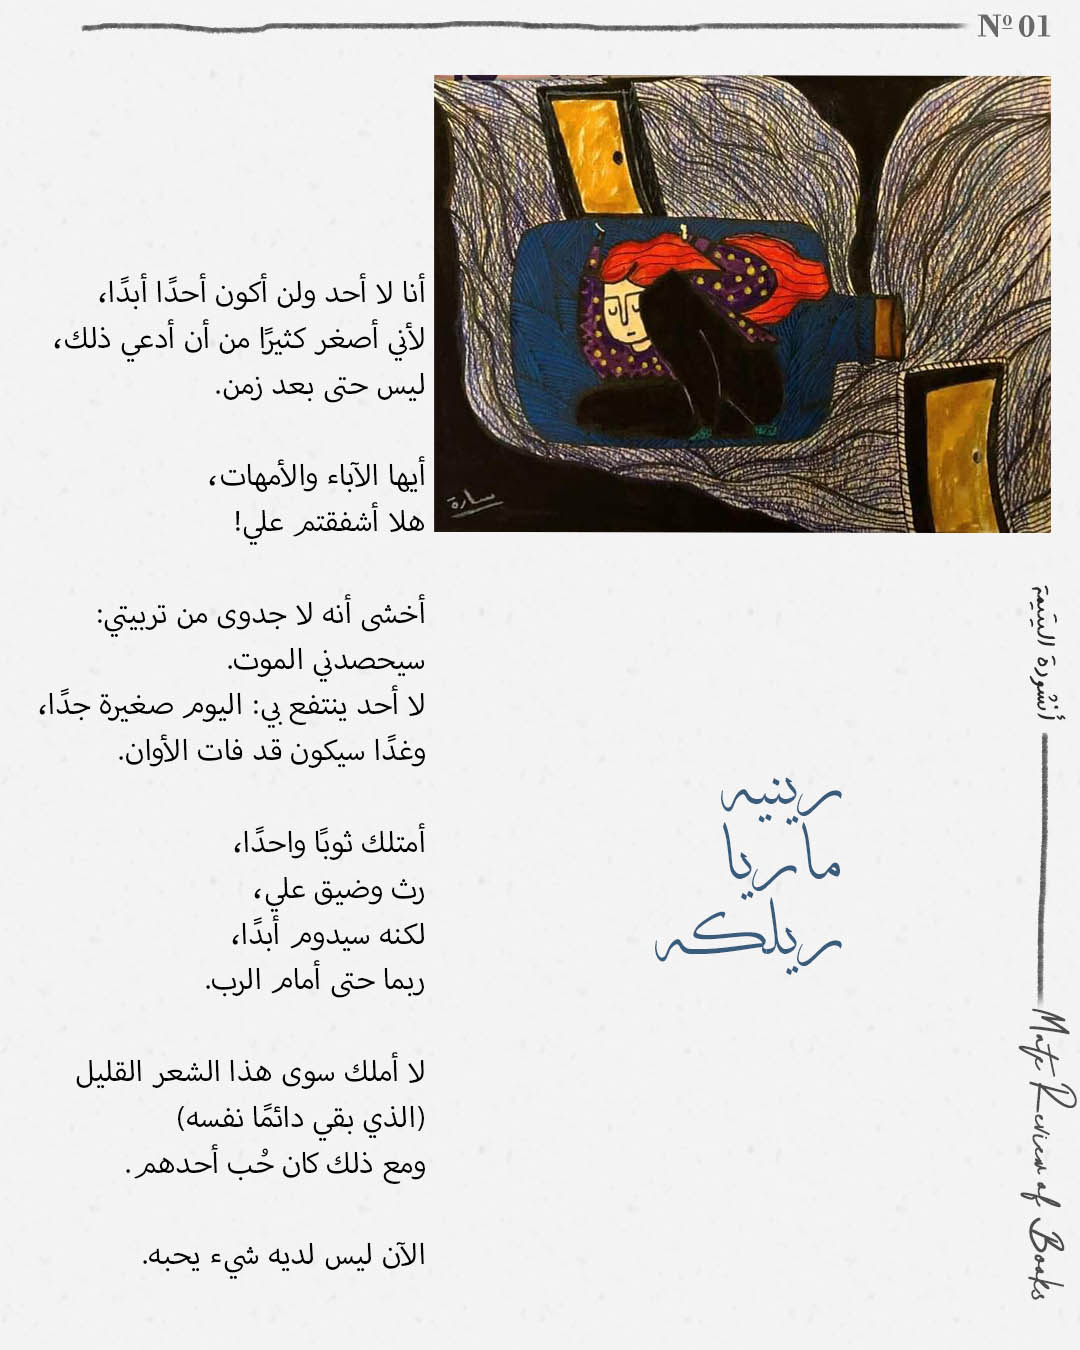 Nº 01
سارة
أنا لا أحد ولن أكون أحدًا أبدًا،
لأني أصغر كثيرًا من أن أدعي ذلك،
ليس حتى بعد زمن.
أيها الآباء والأمهات،
هلا أشفقتم علي!
أخشى أنه لا جدوى من تربيتي:
سيحصدني الموت.
لا أحد ينتفع بي: اليوم صغيرة جدًا،
وغدًا سيكون قد فات الأوان.
أمتلك ثوبًا واحدًا،
رث وضيق علي،
لكنه سيدوم أبدًا،
ربما حتى أمام الرب.
لا أملك سوى هذا الشعر القليل
(الذي بقي دائمًا نفسه)
ومع ذلك كان حُب أحدهم.
الآن ليس لديه شيء يحبه.
رينيه
ماريا
ريلكه
أنشُودة اليَتِيمة
Mate Review of Books